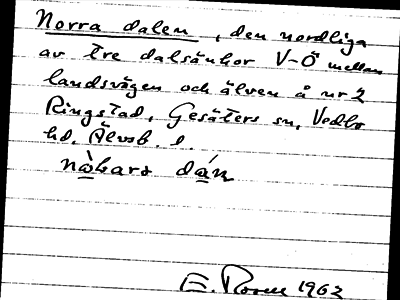 Norra dalen, den nordliga
av tre dalsänkor V-Ö mellan
landsvägen och älven å nr 2
Ringstad, Gesäters sn, Vedbo
hd. Älvsb. l.
nὰbarə dán
E. 1962